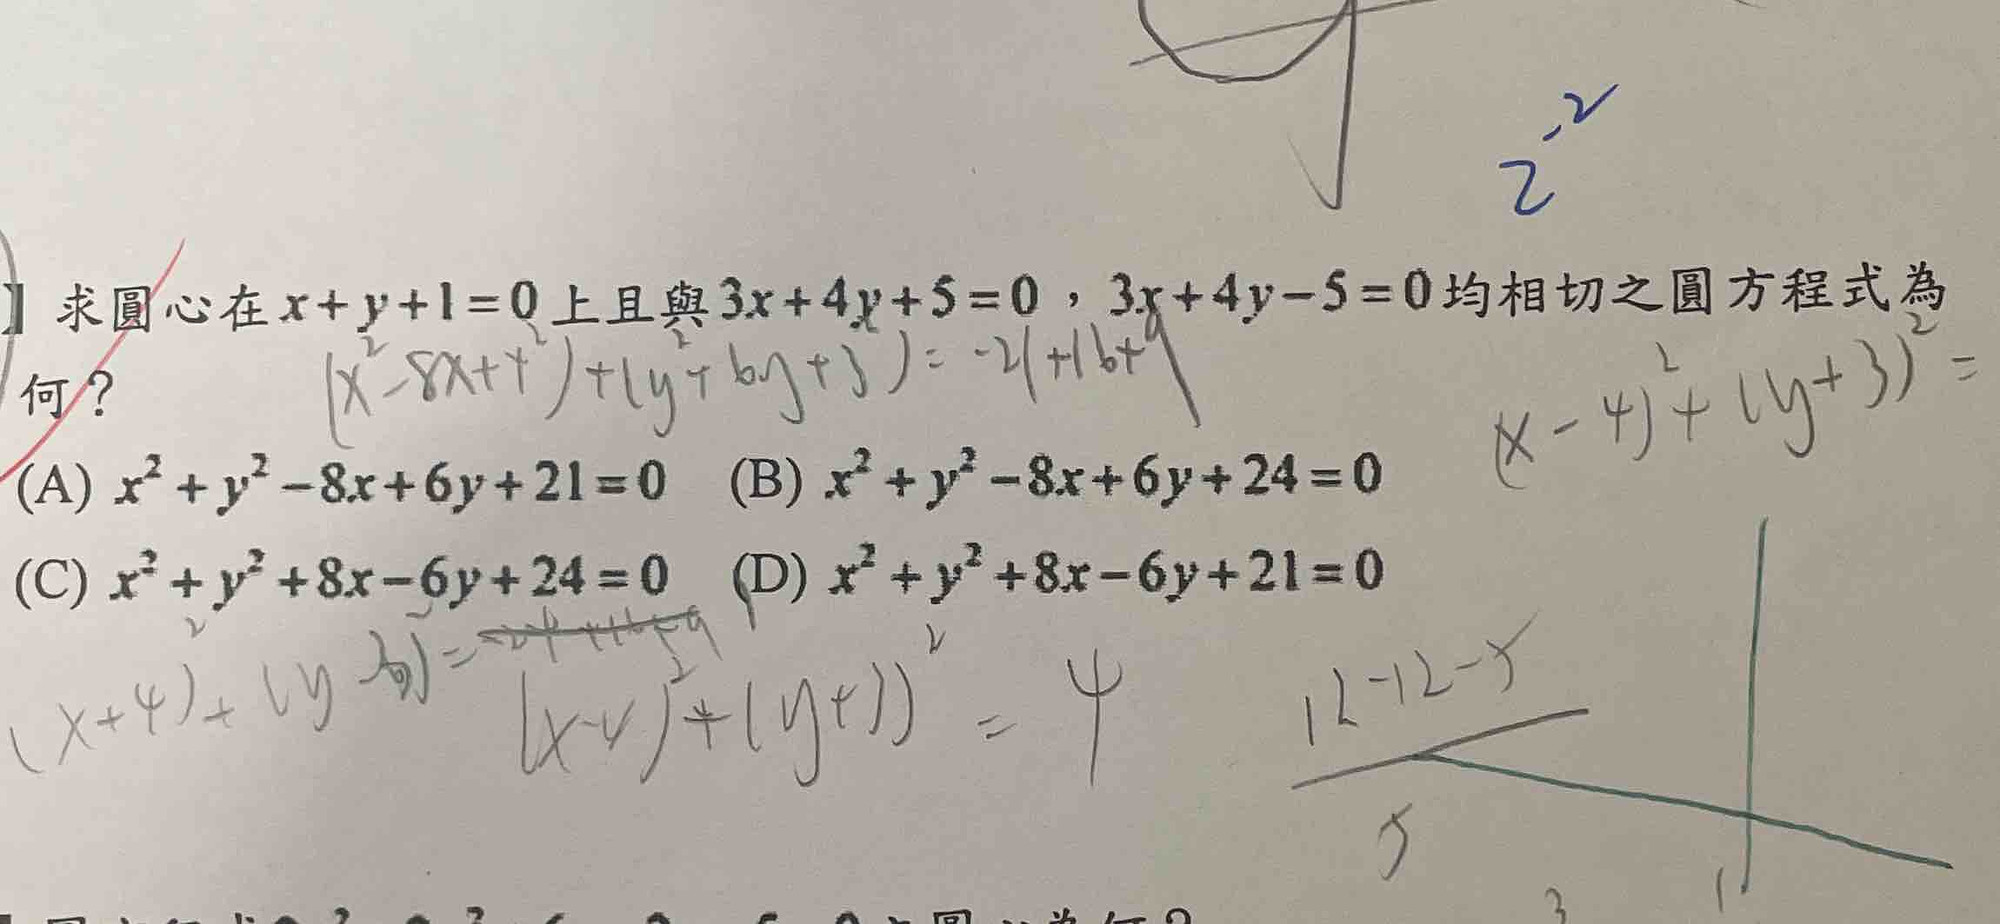 2⁻²
】求圓心在 x+y+1=0 上且與 3x+4y+5=0，3x+4y−5=0 均相切之圓方程式為
何？
(x²−8x+4²)+(y²+6y+3²)=−21+16+9
(x−4)²+(y+3)²=
(A) x²+y²−8x+6y+21=0 (B) x²+y²−8x+6y+24=0
(C) x²+y²+8x−6y+24=0 (D) x²+y²+8x−6y+21=0
(x+4)²+(y−3)²=
(x−4)²+(y+3)²=4
12−12−5
5
3
1